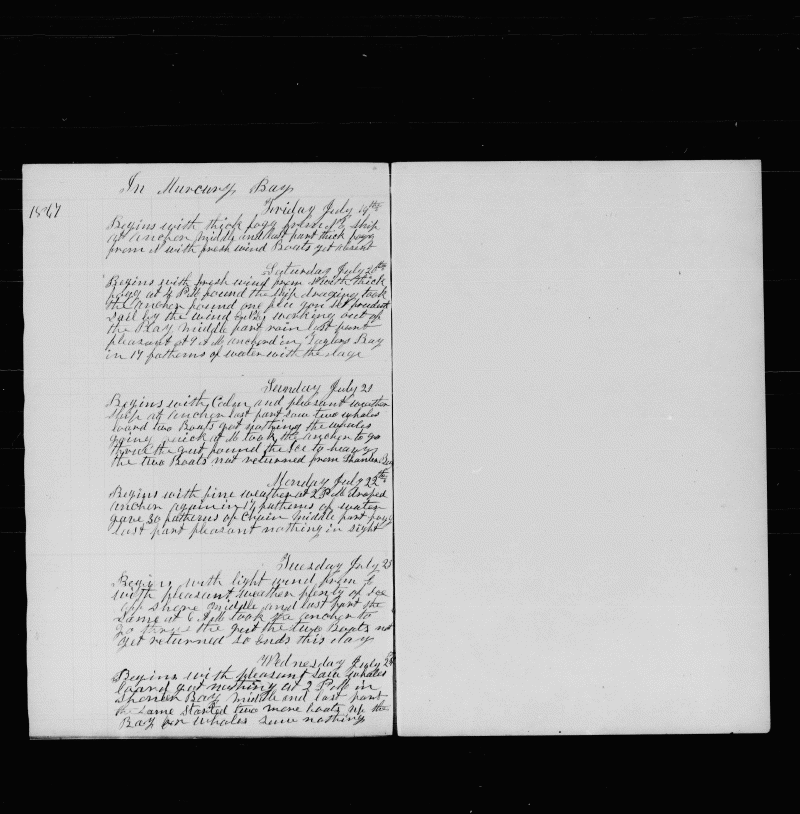 In Mercury Bay
1867
Friday July 19th
Begins with thick fogg from NE ship
at anchor Middle and last part thick fogg
from N with fresh wind Boats yet absent
Saturday July 20th
Begins with fresh wind from N with thick
fogg at 4 PM found the ship draging took
the anchor found one flu gon set
Sail by the wind working out of
the Bay Middle part rain last part
pleasant at 9 A M anchord in Taylors Bay
in 17 fathoms of water with the
Sunday July 21
Begins with Calm and pleasant weather
Ship at anchor last part Saw two whales
loard two Boats got nothing the whales
going quick at M took the anchor to go
threw the gut found the Ice to heavy
the two Boats not returned from Bay
Monday July 22th
Begins with fine weather at 2 P M droped
anchor again in 17 fathoms of water
gave 30 fatherms of Chain Middle part fogg
last part pleasant nothing in sight
Tuesday July 23
Begins with light wind from E
with pleasant weather plenty of Ice
off Shore Middle and last part the
Same at 6 A M took the anchor to
go threw the gut the two Boats not
yet returned So Ends this day
Wednesday July 24
Begins with pleasant Saw whales
loard got nothing at 2 P M in
Bay Middle and last part
the Same Started two more boats up the
Bay for whales Saw nothing